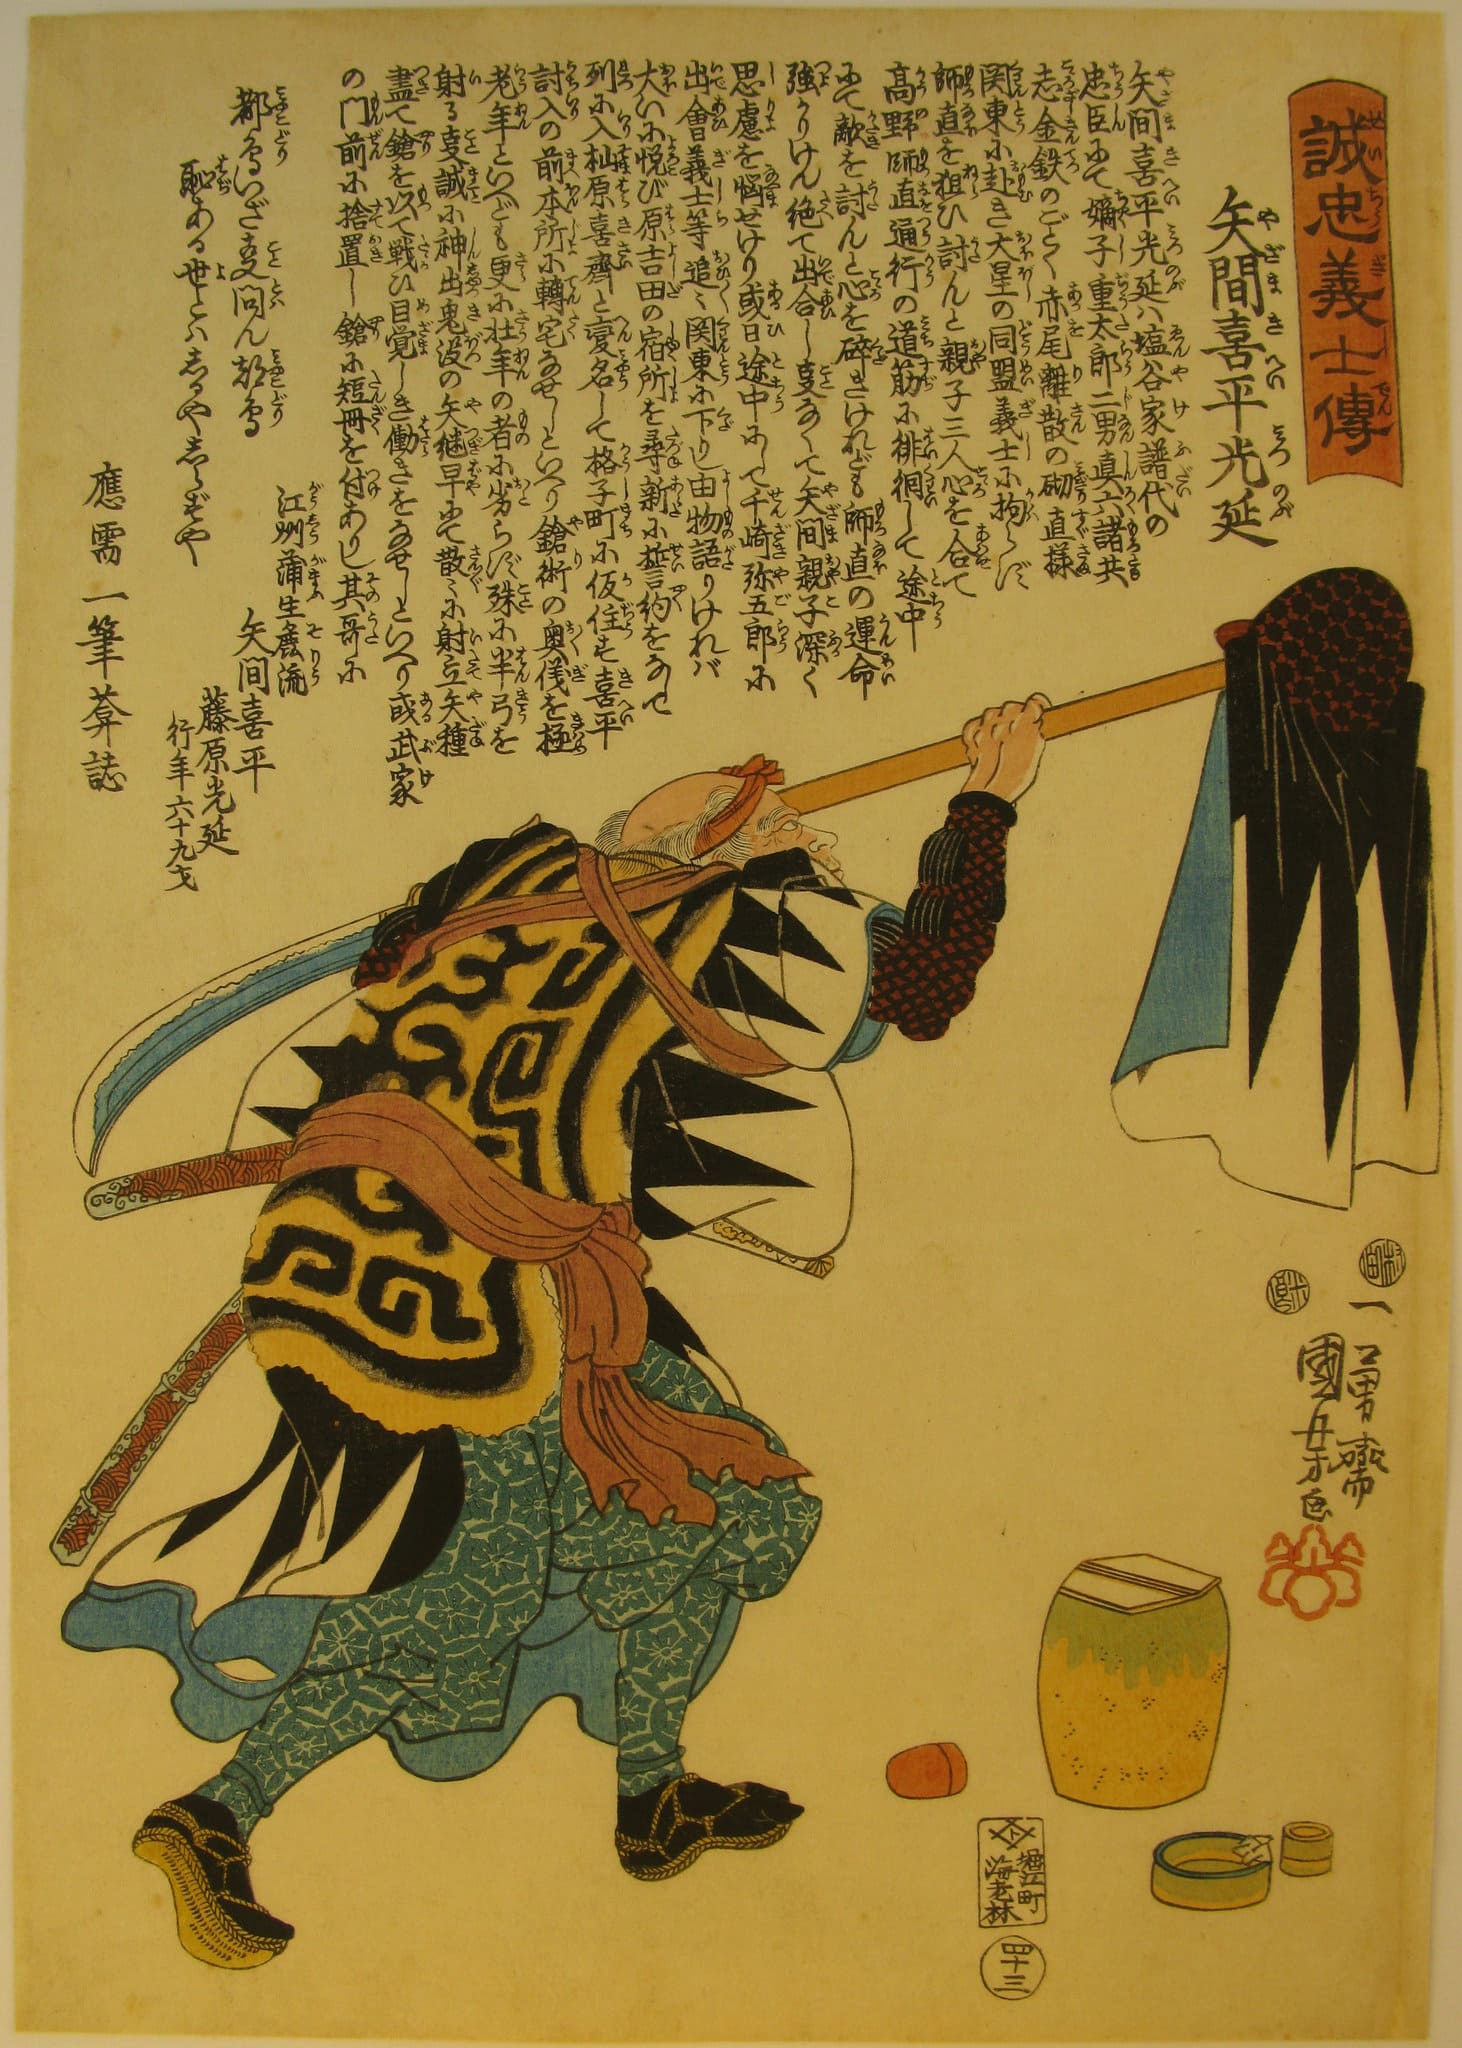 誠忠義士傳
矢間喜平光延
矢間喜平光延ハ塩谷家譜代の
忠臣にて嫡子重太郎二男真六諸共
志金鉄のごとく赤尾離散の砌直様
関東に赴き大星の同盟義士に拘らず
師直を狙ひ討んと親子三人心を合て
高野師直通行の道筋に徘徊して途中
にて敵を討んと心を砕きけれども師直の運命
強かりけん絶て出合し事なくて矢間親子深く
思慮を悩せけり或日途中にて千崎弥五郎に
出會義士等追〻関東に下りし由物語りけれバ
大いに悦び原吉田の宿所を尋新に誓約をなして
列に入杣原喜齊と変名して格子町に仮住す喜平
討入の前本所に轉宅なせしといへり鎗術の奥儀を極
老年といへども更に壮年の者に劣らず殊に半弓を
射る事誠に神出鬼没の矢継早にて散〻に射立矢種
盡て鎗を以て戦ひ目覚しき働きをなせしといへり或武家
の門前に捨置し鎗に短冊を付ありし其哥に
都鳥いざ事問ん都鳥
恥ある世とハしるやしらずや
江州蒲生鹿流
矢間喜平
藤原光延
行年六十九才
應需一筆葊誌
村田
米良
一勇齋
國芳画
堀江町
海老林
四十三